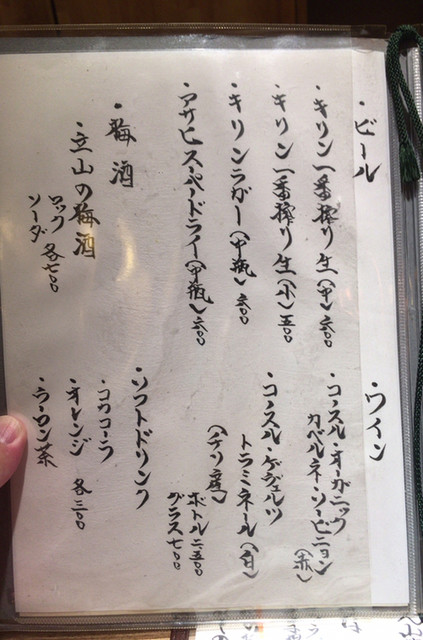 ・ビール
・キリン一番搾り生(中)六〇〇
・キリン一番搾り生(小)五〇〇
・キリンラガー(中瓶)六〇〇
・アサヒスーパードライ(中瓶)六〇〇
・梅酒
・立山の梅酒
ロック
ソーダ 各七〇〇
・ワイン
・コノスル・オーガニック
カベルネ・ソービニョン(赤)
・コノスル・ゲヴュルツ
トラミネール(白)
(チリ産)
ボトル二五〇〇
グラス七〇〇
・ソフトドリンク
・コカコーラ
・オレンジ 各三〇〇
・ウーロン茶